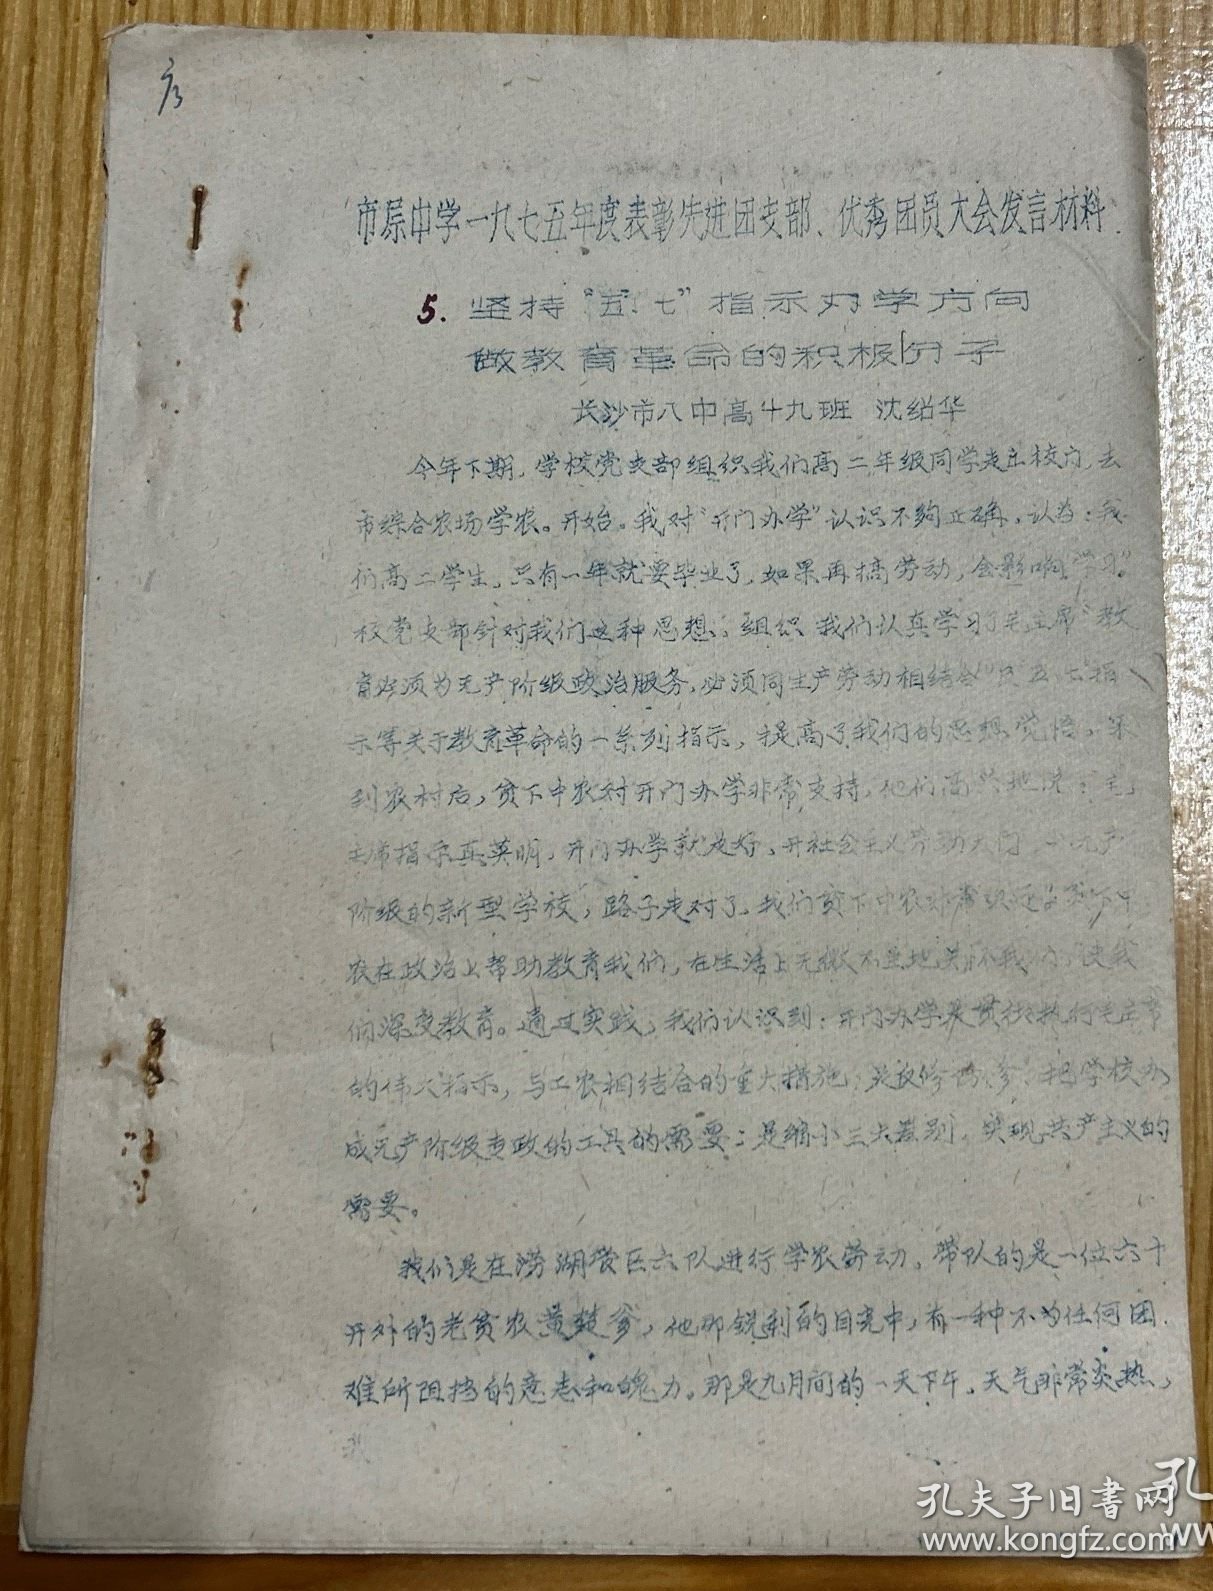 市属中学一九七五年度表彰先进团支部、优秀团员大会发言材料
5. 坚持“五·七”指示办学方向
做教育革命的积极分子
长沙市八中高十九班 沈绍华
今年下期,学校党支部组织我们高二年级同学走出校门,去
市综合农场学农。开始。我对“开门办学”认识不够正确,认为:我
们高二学生,只有一年就要毕业了,如果再搞劳动,会影响“学习”。
校党支部针对我们这种思想,组织我们认真学习了毛主席“教
育必须为无产阶级政治服务,必须同生产劳动相结合”“五·七”指
示等关于教育革命的一系列指示,提高了我们的思想觉悟,来
到农村后,贫下中农对开门办学非常支持,他们高兴地说:毛
主席指示真英明,开门办学就是好,开社会主义劳动大门,无产
阶级的新型学校,路子走对了,我们贫下中农非常欢迎”贫下中
农在政治上帮助教育我们,在生活上无微不至地关怀我们,使我
们深受教育。通过实践,我们认识到:开门办学是贯彻执行毛主席
的伟大指示,与工农相结合的重大措施,是反修防修、把学校办
成无产阶级专政的工具的需要;是缩小三大差别,实现共产主义的
需要。
我们是在涝湖管区六队进行学农劳动,带队的是一位六十
开外的老贫农黄楚爹,他那锐利的目光中,有一种不为任何困
难所阻挡的意志和魄力。那是九月间的一天下午,天气非常炎热,
我
孔夫子旧书网
www.kongfz.com
孔